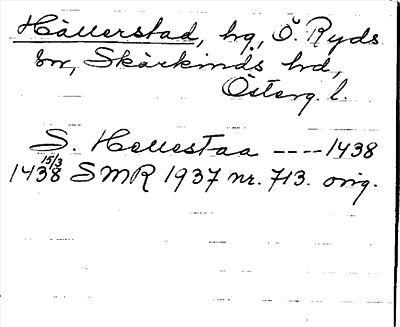 Hällerstad, hg, Ö. Ryds
sn, Skärkinds hd,
Österg. l.
S. Hellestaa ---- 1438
1438 15/3 SMR 1937 nr. 713. orig.